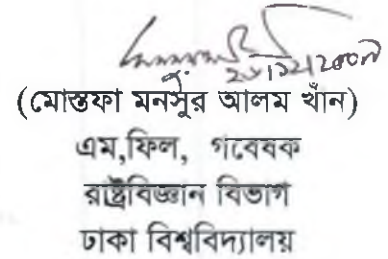 (মোস্তফা মনসুর আলম খাঁন)
এম,ফিল, গবেষক
রাষ্ট্রবিজ্ঞান বিভাগ
ঢাকা বিশ্ববিদ্যালয়